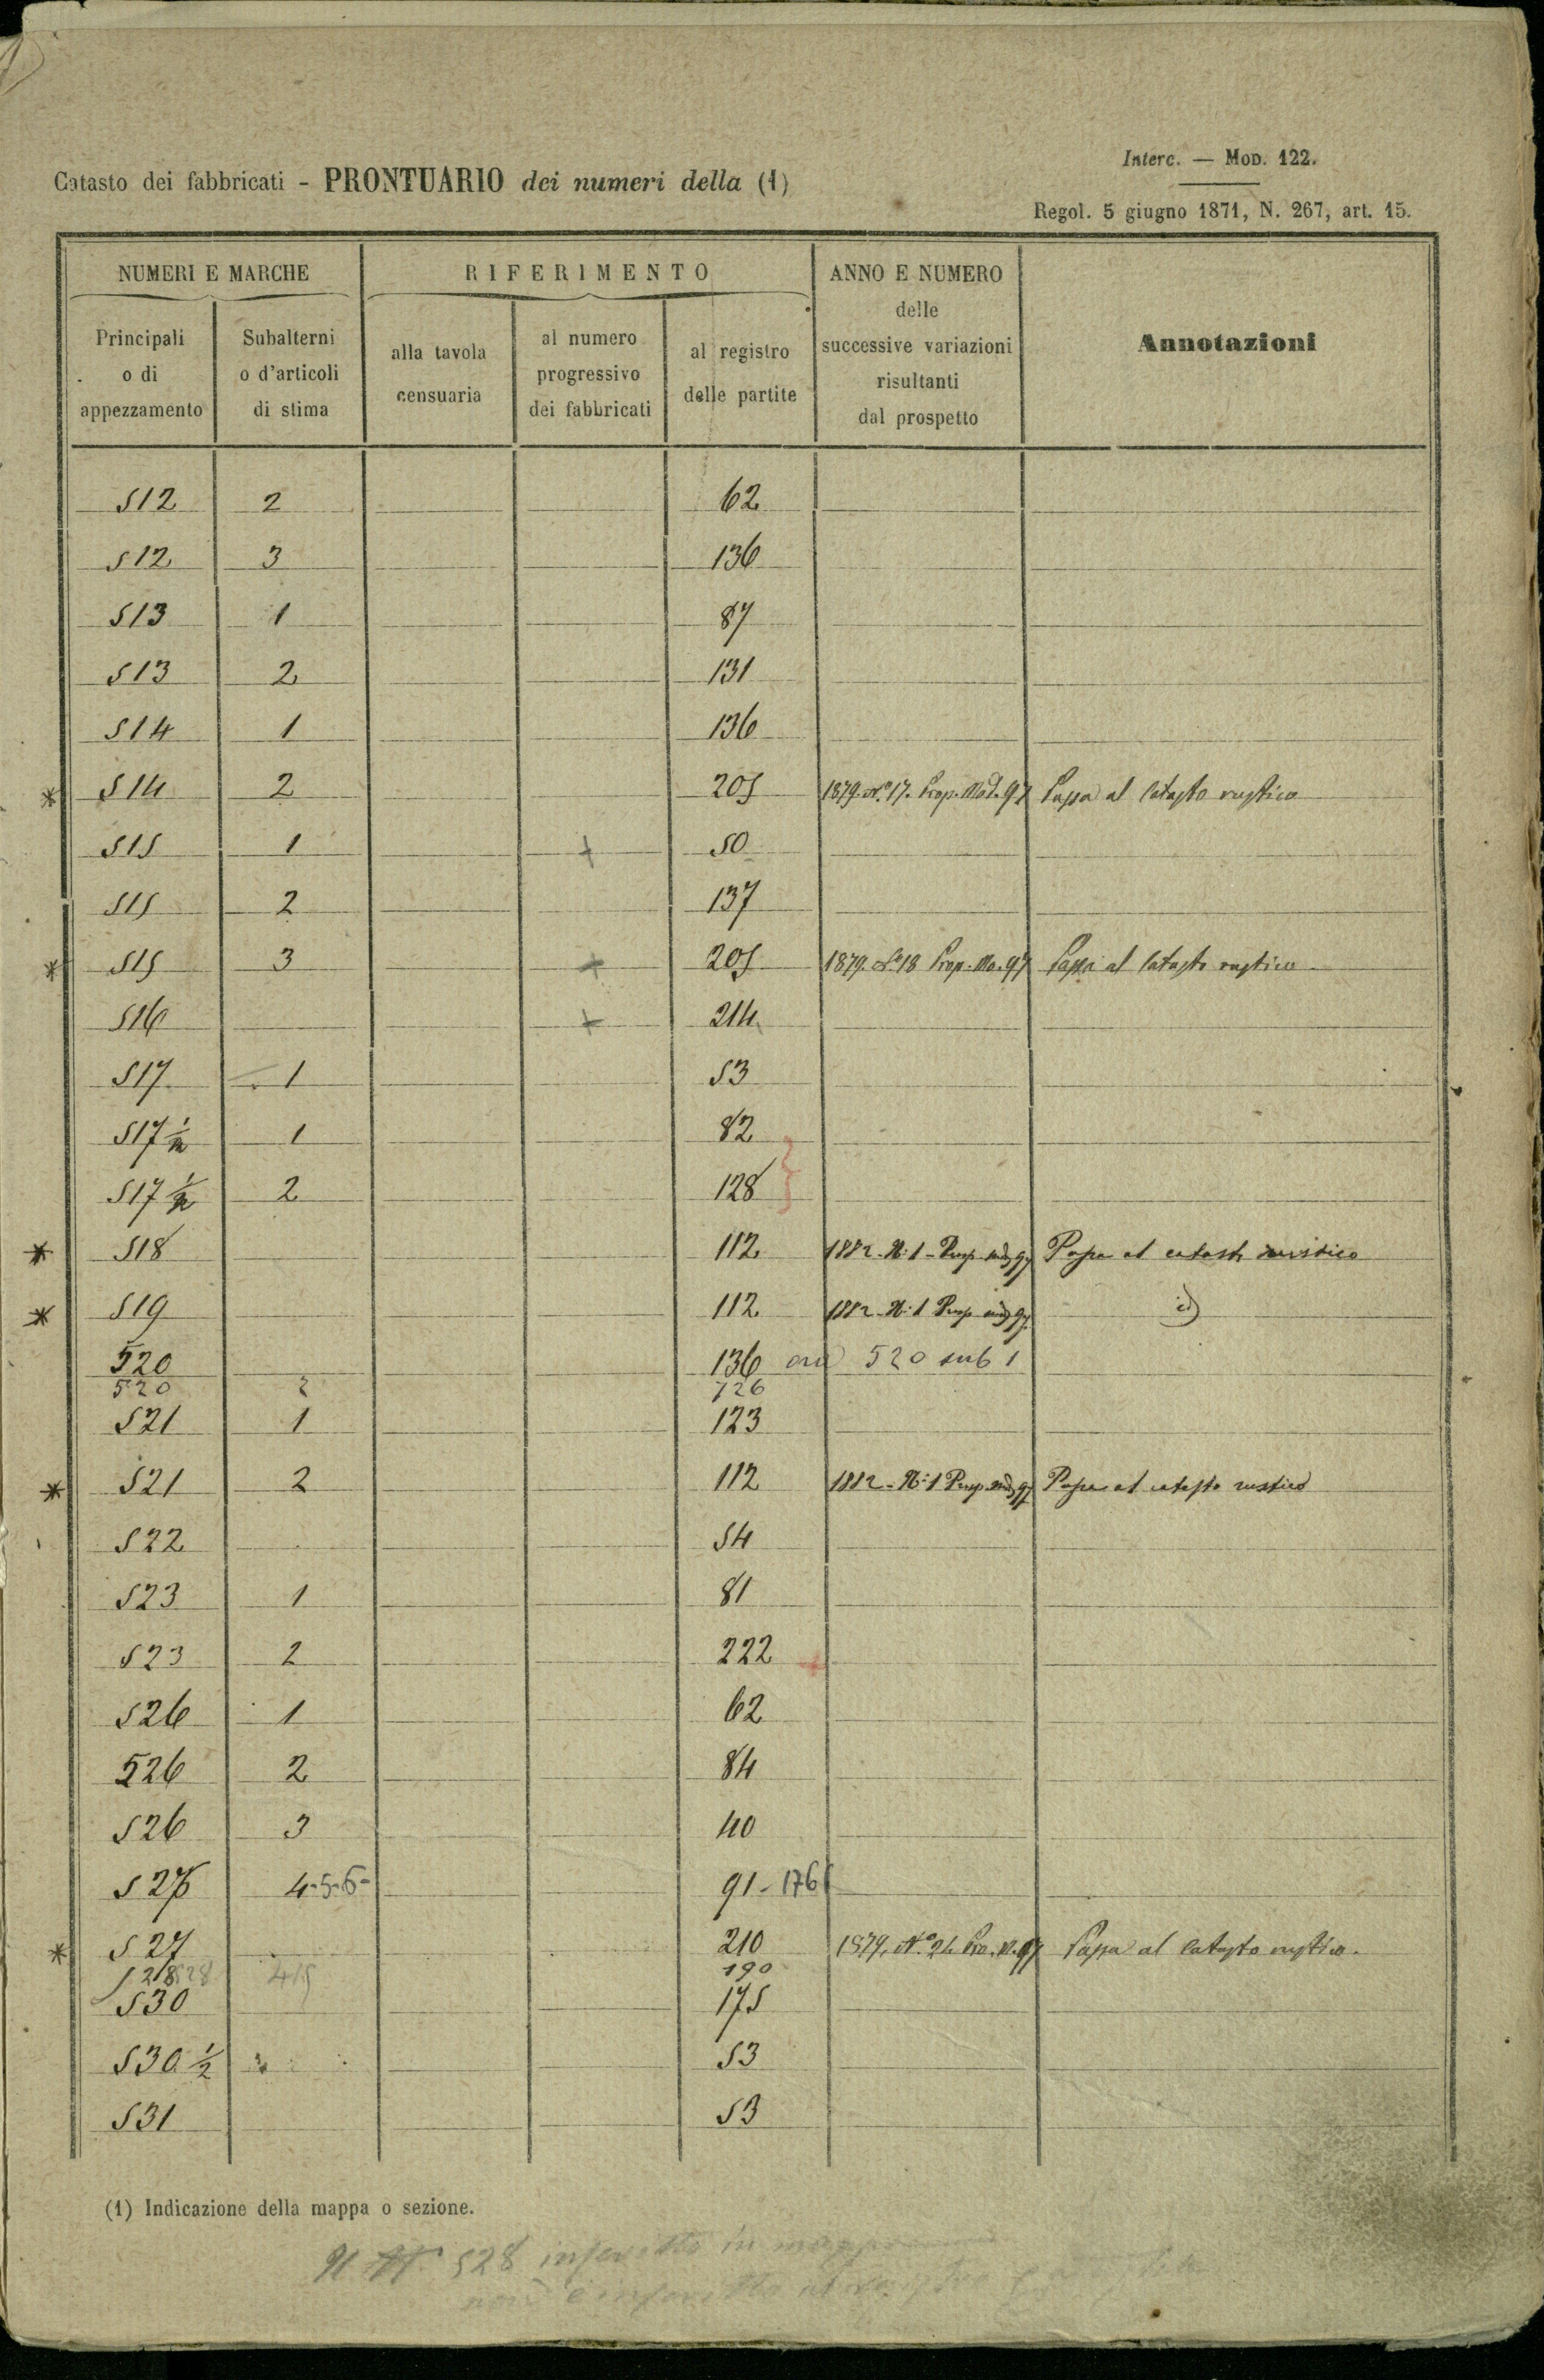 Interc. — Mod. 122.
Catasto dei fabbricati - PRONTUARIO dei numeri della (1)
Regol. 5 giugno 1871, N. 267, art. 15.
NUMERI E MARCHE RIFERIMENTO ANNO E NUMERO delle successive variazioni risultanti dal prospetto Annotazioni
Principali o di appezzamento Subalterni o d'articoli di stima alla tavola censuaria al numero progressivo dei fabbricati al registro delle partite
512 2 62
512 3 136
513 1 87
513 2 131
514 1 136
* 514 2 205 1879. N.º 17. Prop. Mod. 97 Passa al Catasto rustico
515 1 + 50
515 2 137
* 515 3 + 205 1879. Nº 18 Prop. Mo. 97 Passa al Catasto rustico
516 + 214
517 1 53
517 1/2 1 82
517 1/2 2 128
* 518 112 1882 - N: 1 - Prosp. mod 97 Passa al catasto rustico
* 519 112 1882 - N: 1 Prosp. mod 97 id
520 136 ora 520 sub 1
520 2 726
521 1 123
* 521 2 112 1882 - N: 1 Prosp. mod 97 Passa al catasto rustico
522 54
523 1 81
523 2 222 +
526 1 62
526 2 84
526 3 40
4-5-6- 91 - 176
* 527 210 1879. N.º 24 Pro. M. 97 Passa al Catasto rustico.
528 4/5 190
530 175
530 1/2 53
531 53
(1) Indicazione della mappa o sezione.
528 in mappa
non è